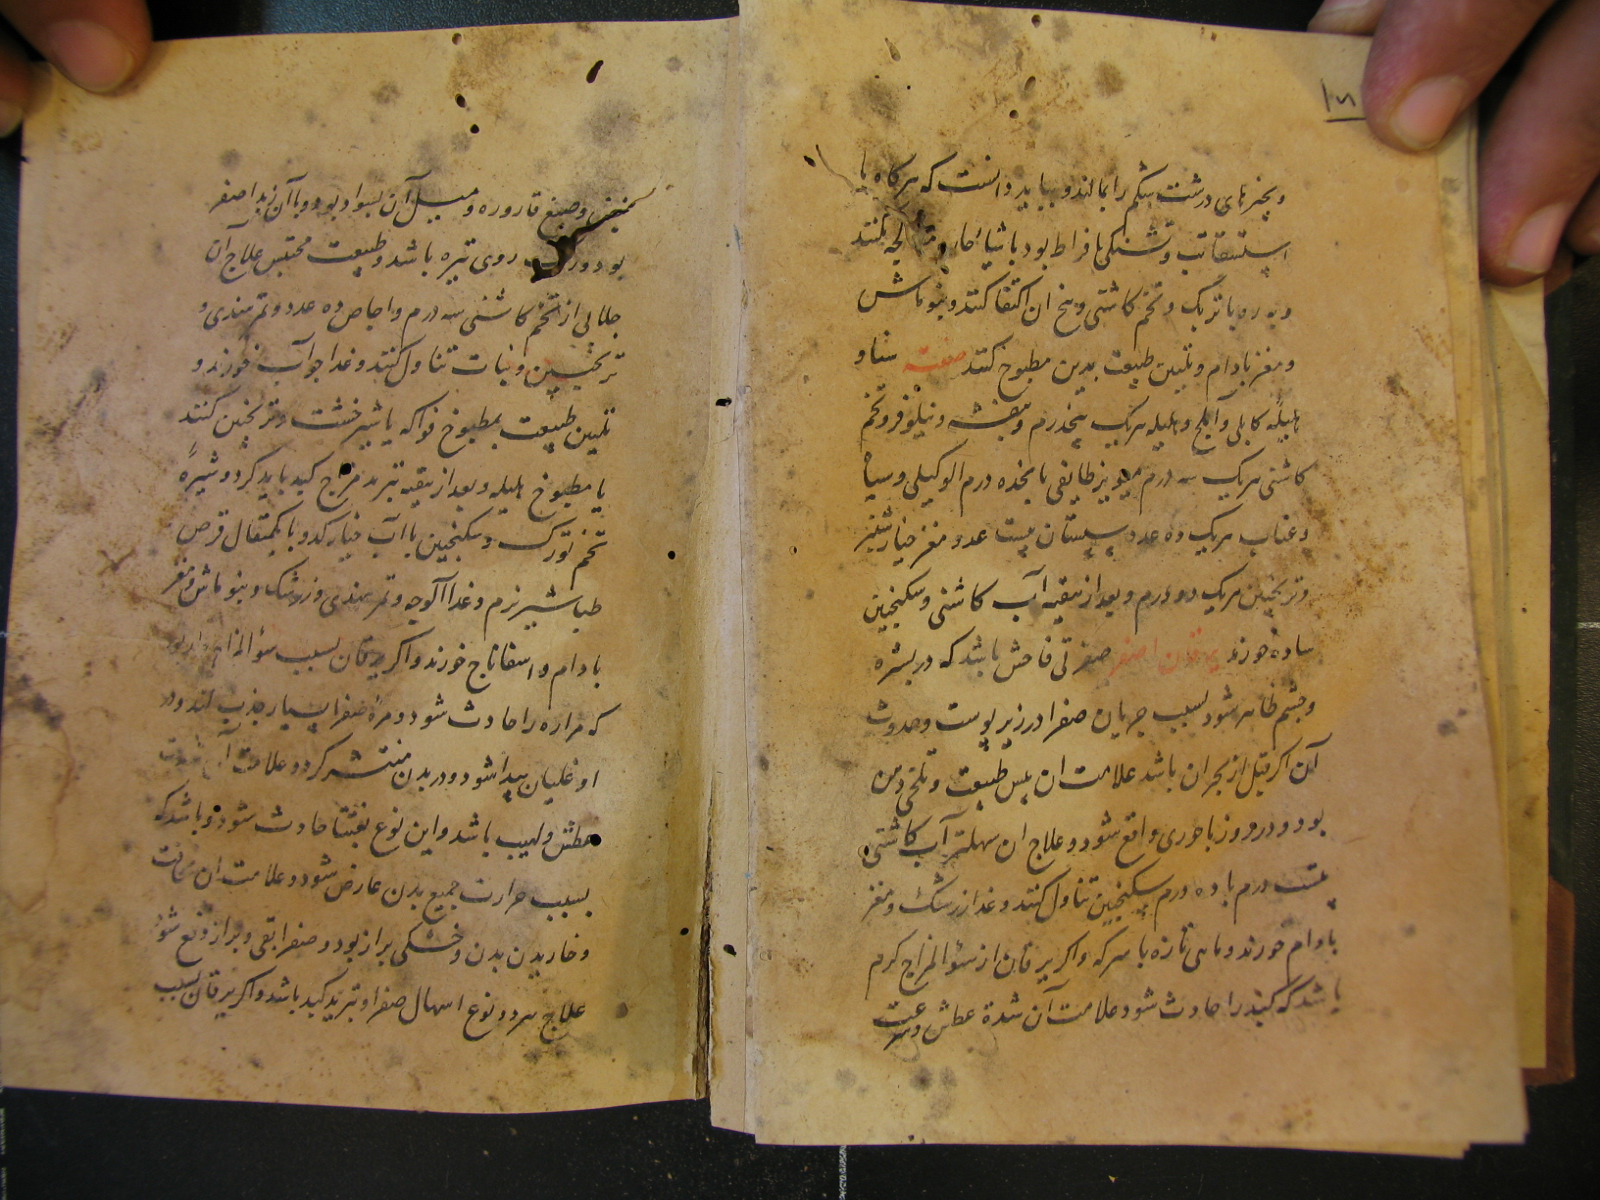 ۱۸
و بچیزهای درشت شکم را بمالند و بباید دانست که هرگاه با
استسقا تب و تشنگی بافراط بود باشیاء حار معالجه نکنند
و به ترنک و تخم کاشنی و بیخ ان اکتفا کنند و بنوماش
و مغز بادام و تلیین طبیعت بدین مطبوخ کنند صفت سنا و
هلیلهٔ کابلی و آملج و هلیله هریک پنجدرم و بنفشه و نیلوفر و تخم
کاشنی هریک سه درم مویز طایفی پانجده درم الو کیلی و سیاه
و عناب هریک ده عدد سپستان بیست عدد مغز خیارشنبر
و ترنجبین هریک ده درم و بعد از تنقیه آب کاشنی و سکنجبین
ساده خورند یرقان اصفر صفرتی فاحش باشد که در بشره
و چشم ظاهر شود بسبب جریان صفرا در زیر پوست و حدوث
آن اکر قبل از بحران باشد علامت ان یبس طبیعت و تلخی دهن
بود و در روز باحوری واقع شود و علاج ان سهلتر آب کاشنی
بیست درم با ده درم سکنجبین تناول کنند و غذا زرشک و مغز
بادام خورند و ماهی تازه با سرکه و اکر یرقان از سؤالمزاج کرم
باشد که کبد را حادث شود علامت آن شدة عطش و سرعت
نبض و صبغ قاروره و میل آن بسواد بود و با آن زبد اصفر
بود و رنک روی تیره باشد و طبیعت محتبس علاج آن
جلابی از تخم کاشنی سه درم و اجاص ده عدد و تمرهندی و
ترنجبین و نبات تناول کنند و غذا جوآب خورند و
تلیین طبیعت بمطبوخ فواکه یا شیرخشت و ترنجبین کنند
یا مطبوخ هلیله و بعد از تنقیه تبرید مزاج کبد باید کرد و شیرهٔ
تخم تورک و سکنجبین با آب خیار و کدو با یکمثقال قرص
طباشیر نرم و غذا آلوچه و تمرهندی و زرشک و بنوماش و مغز
بادام و اسفاناج خورند و اکر یرقان بسبب سؤالمزاج حار بود
که مراره را حادث شود و مرهٔ صفرا بسیار جذب کند و در
او غلیان پیدا شود و در بدن منتشر کردد علامت آن شدت
عطش و لهیب باشد و این نوع بغتتا حادث شود و باشد که
بسبب حرارت جمیع بدن عارض شود و علامت ان
و خاریدن بدن و خشکی براز بود و صفرا بقی و براز دفع شود
علاج هر دو نوع اسهال صفرا و تبرید کبد باشد و اکر یرقان بسبب